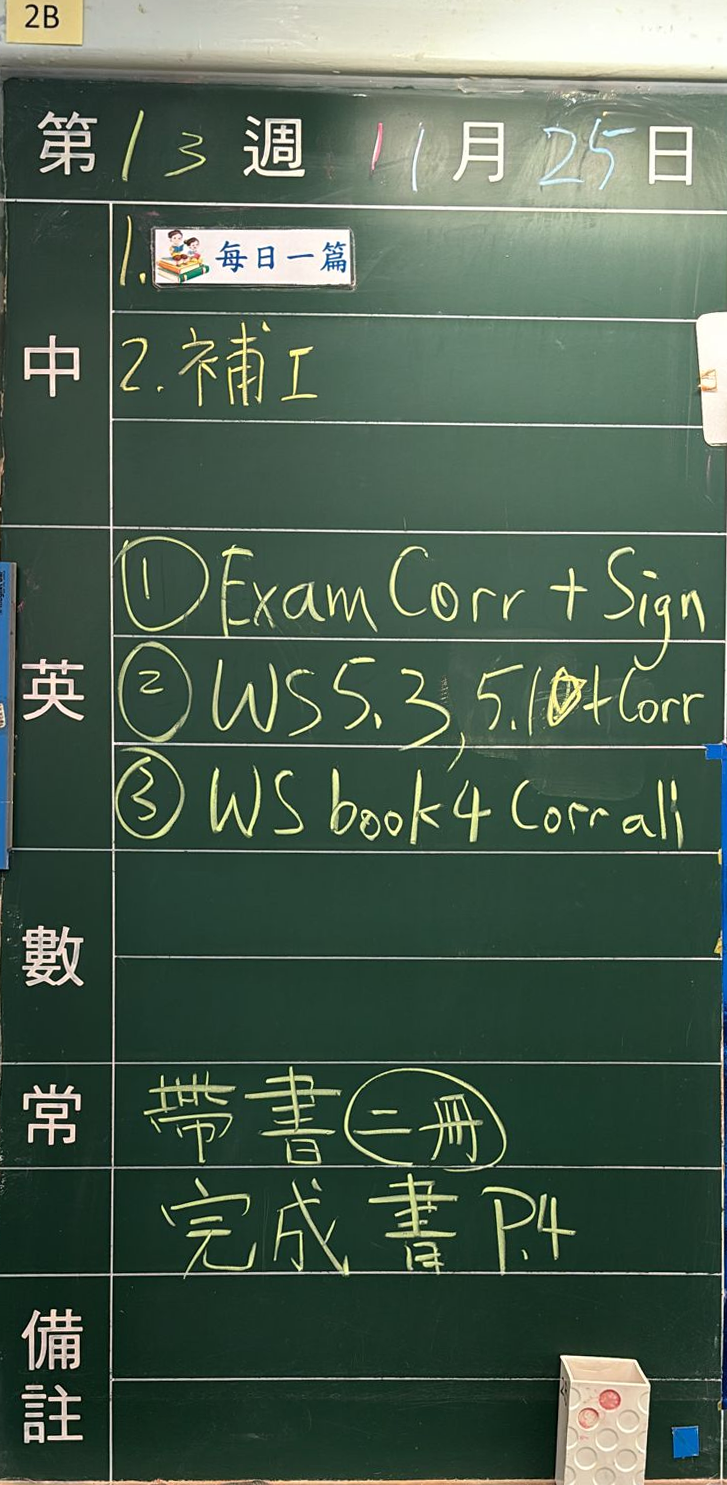 2B
第13週 11月25日
中
1. 每日一篇
2. 補工
英
① Exam Corr + Sign
② WS 5.3, 5.10 + Corr
③ WS book 4 Corr all
數
常
帶書 二冊
完成書 P.4
備註